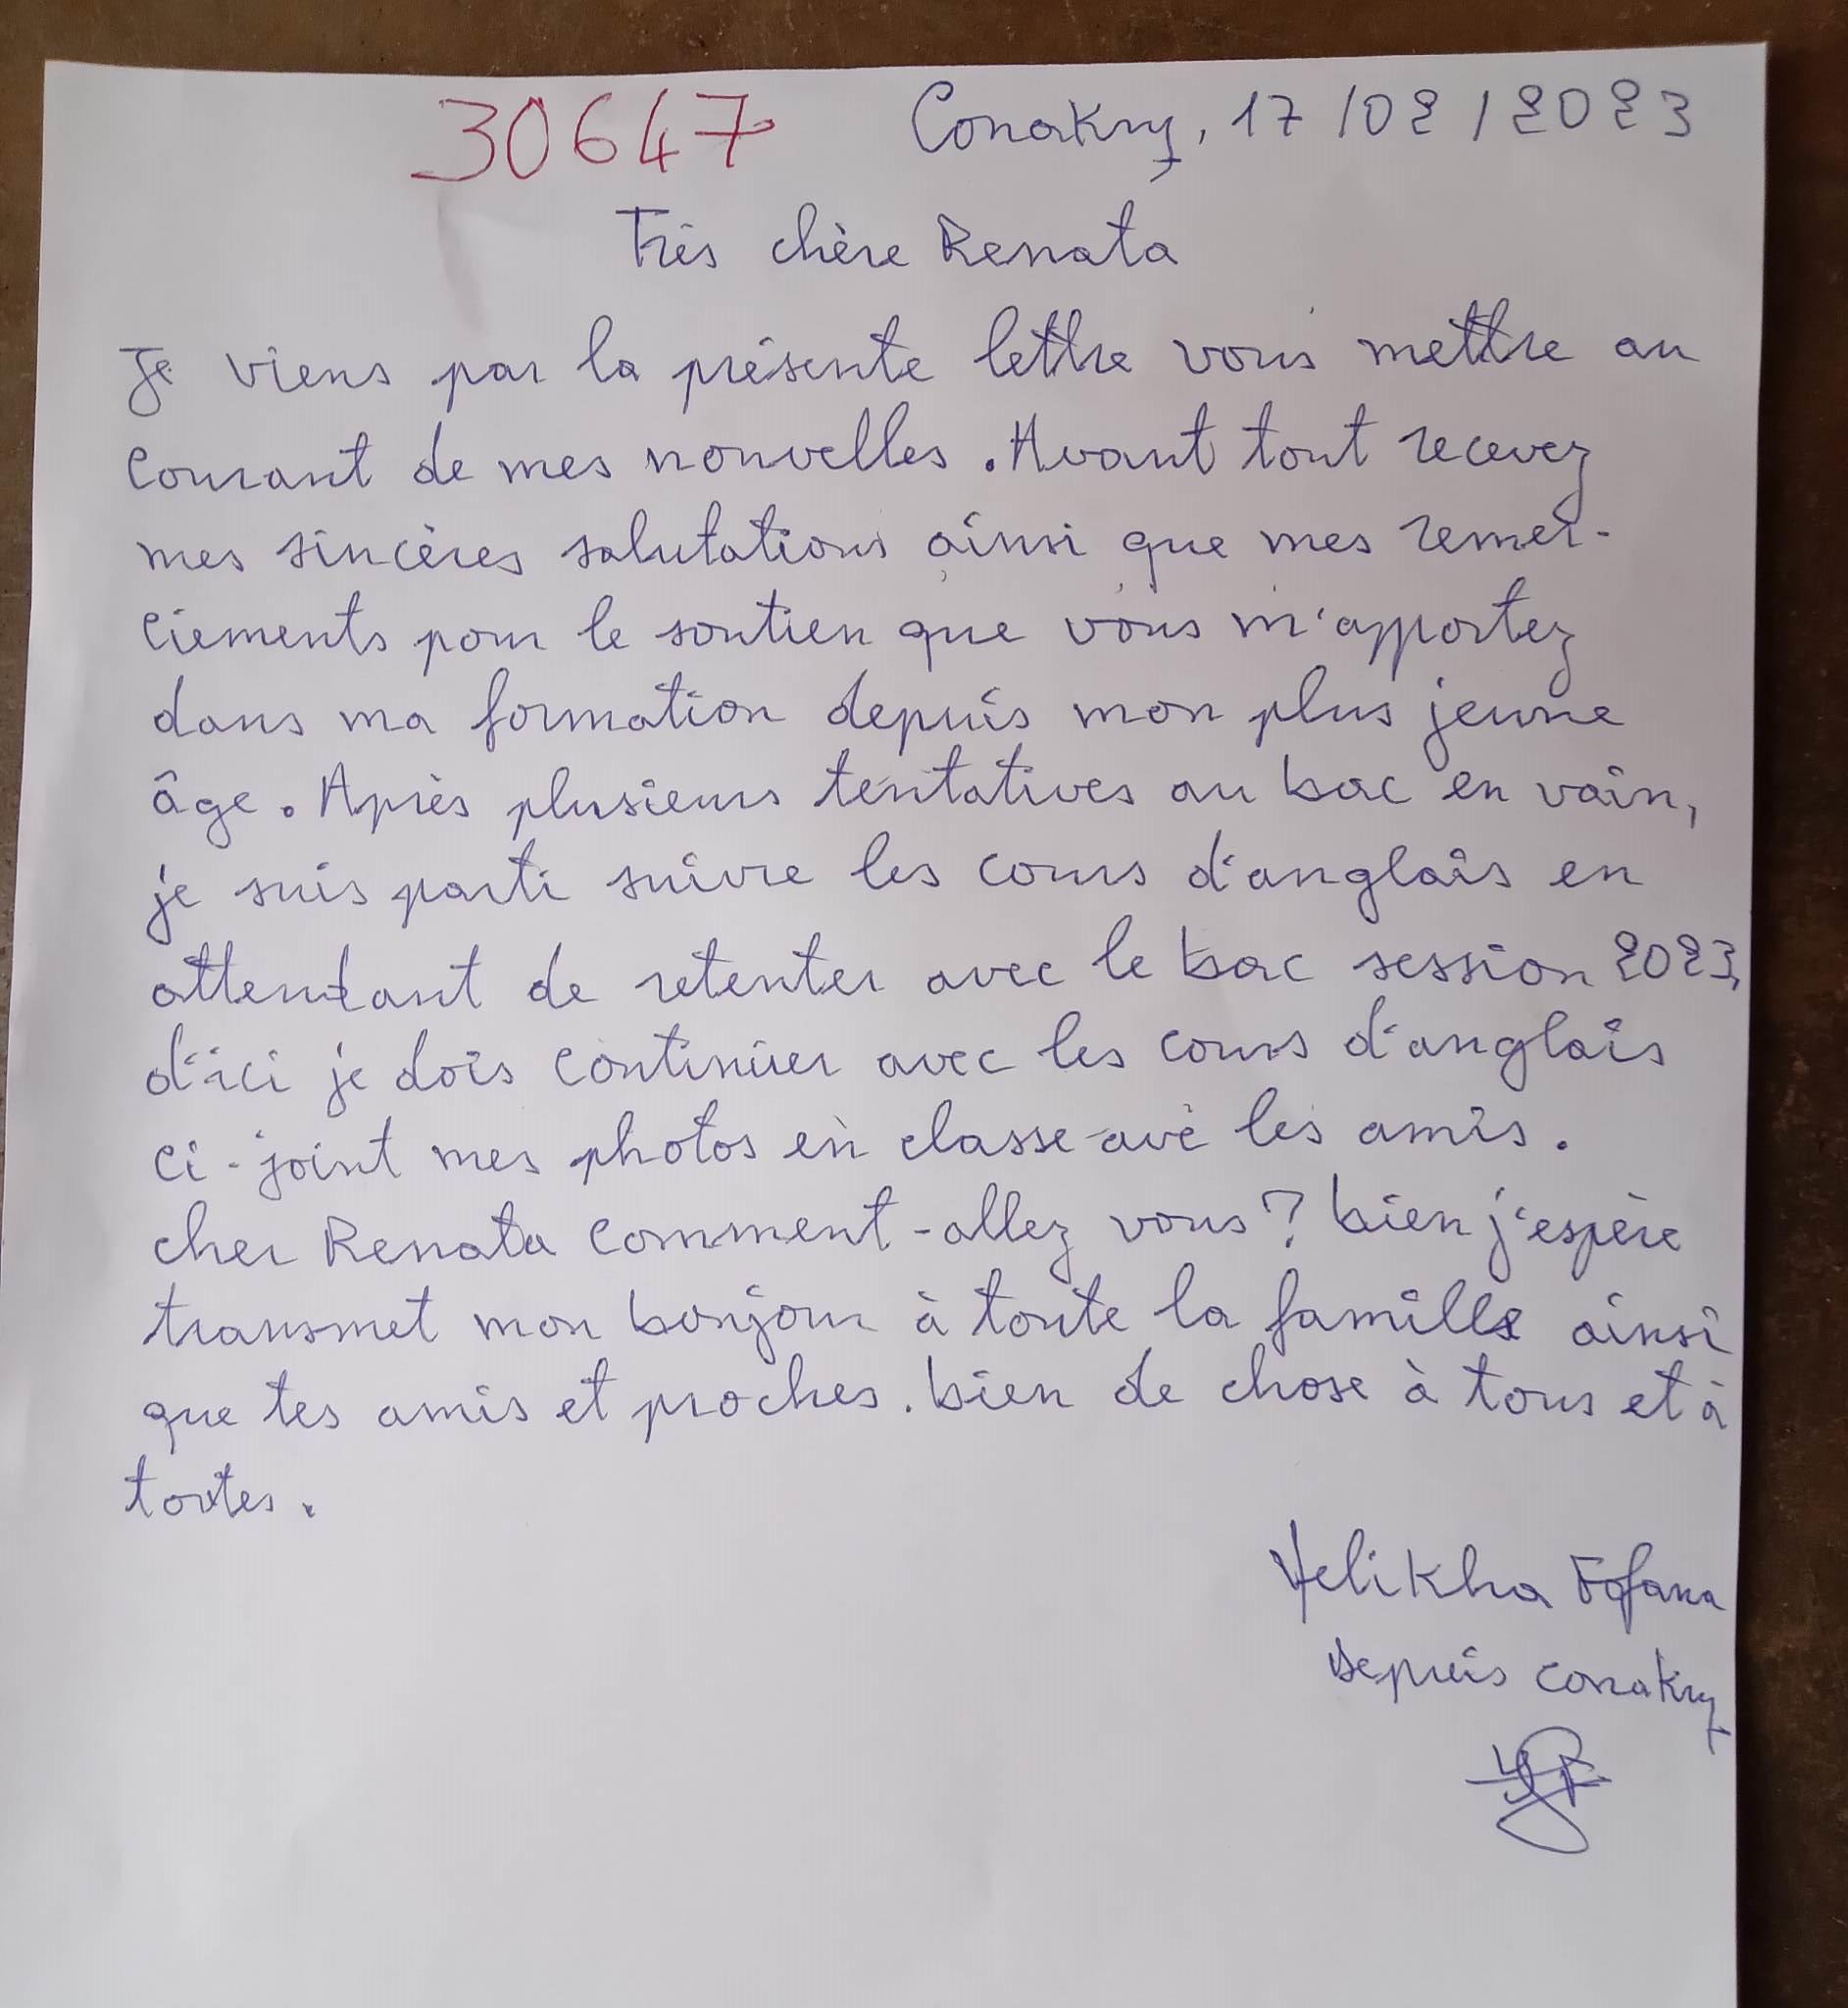 30647 Conakry, 17/02/2023
Très chère Renata
Je viens par la présente lettre vous mettre au
courant de mes nouvelles. Avant tout recevez
mes sincères salutations ainsi que mes remer-
ciements pour le soutien que vous m'apportez
dans ma formation depuis mon plus jeune
âge. Après plusieurs tentatives au bac en vain,
je suis parti suivre les cours d'anglais en
attendant de retenter avec le bac session 2023,
d'ici je dois continuer avec les cours d'anglais
ci-joint mes photos en classe avc les amis.
cher Renata comment-allez vous? bien j'espère
transmet mon bonjour à toute la famille ainsi
que tes amis et proches. bien de chose à tous et à
toutes.
Yelikha Fofana
Depuis conakry